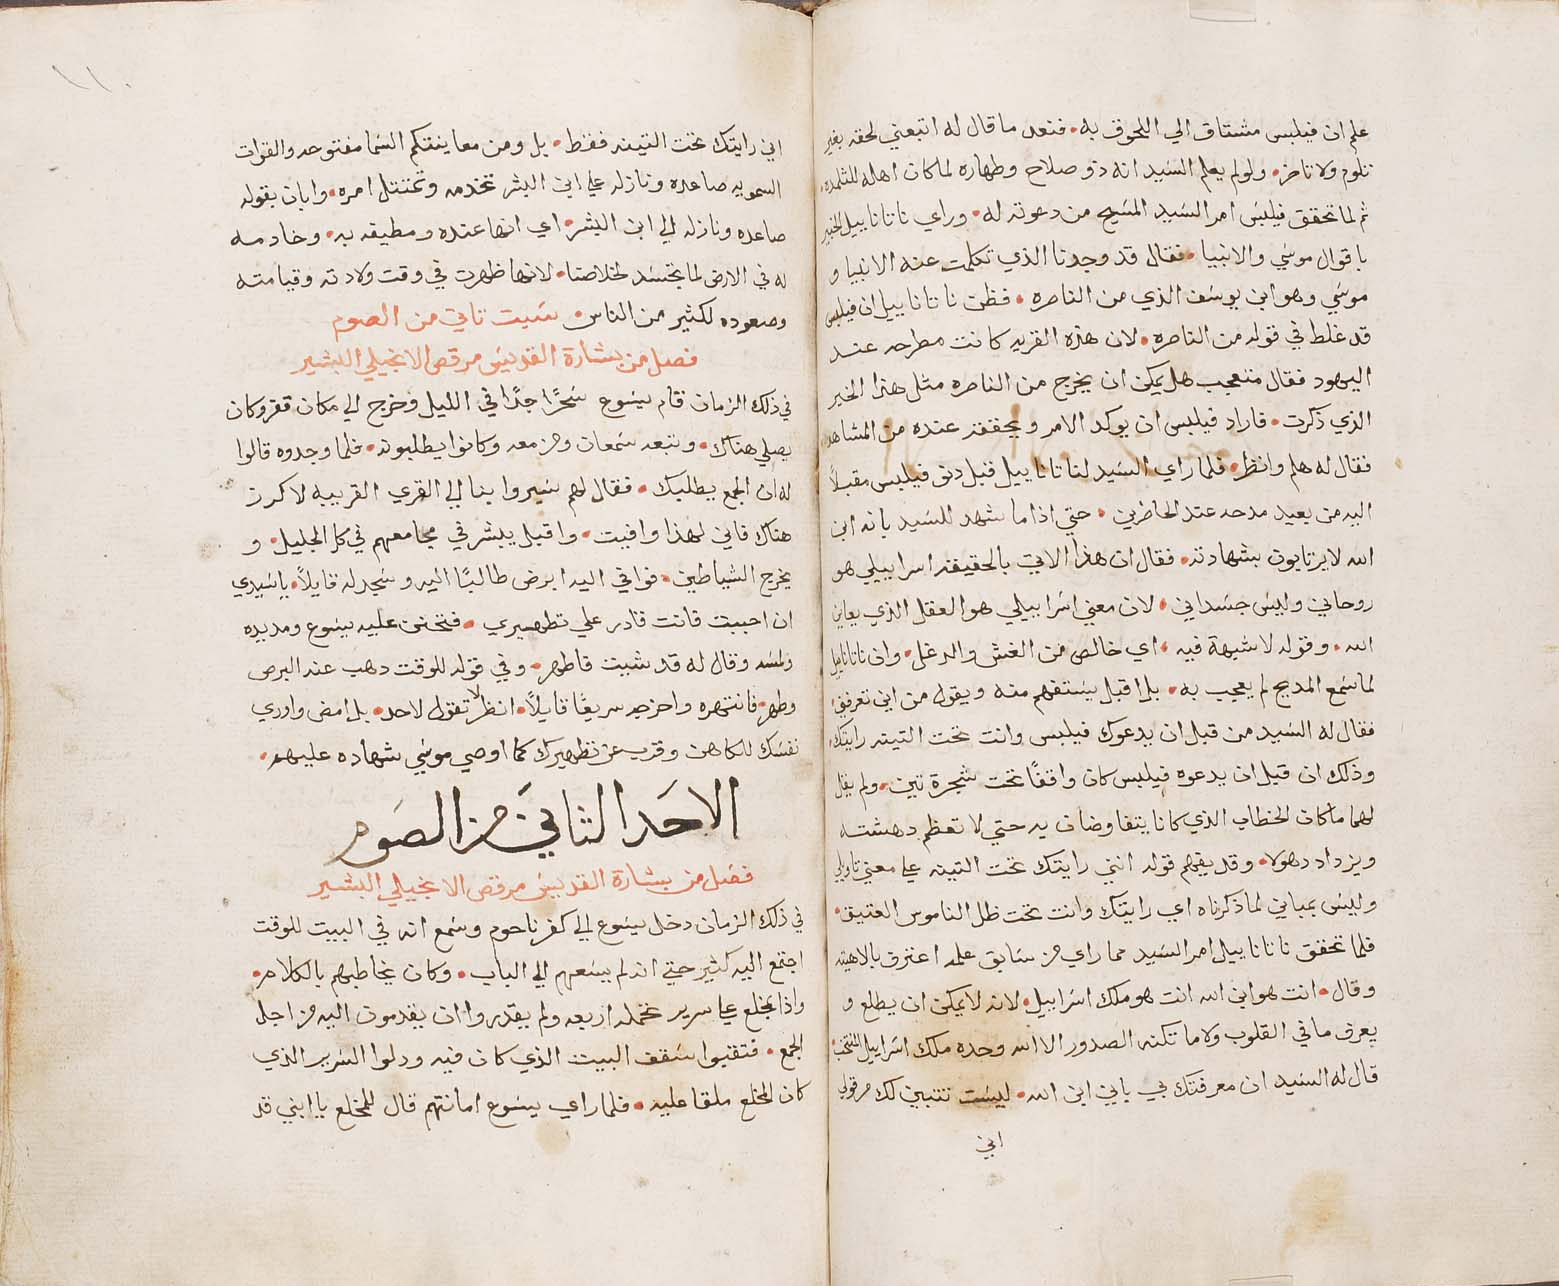 علم ان فيلبس مشتاق الي اللحوق به • فنعد ما قال له اتبعني لحقه بغير
تلوم ولا تاخر • ولو لم يعلم السيد انه ذو صلاح وطهاره لما كان اهله للتلمده •
ثم لما تحقق فيلبس امر السيد المسيح من دعوته له • وراي ناتاناييل الخبير
باقوال موسي والانبيا • فقال قد وجدنا الذي تكلمت عنه الانبيا و
موسي وهو ابن يوسف الذي من الناصره • فظن ناتاناييل ان فيلبس
قد غلط في قوله من الناصره • لان هذه القريه كانت مطرحه عند
اليهود فقال متعجب هل يمكن ان يخرج من الناصره مثل هذا الخير
الذي ذكرت • فاراد فيلبس ان يوكد الامر ويحققه عنده من المشاهد
فقال له هلم وانظر • فلما راي السيد لناتاناييل قبل دنو فيلبس مقبلاً
اليه من بعيد مدحه عند الحاضرين • حتي اذا ما شهد للسيد بانه ابن
الله لا يرتابون بشهادته • فقال ان هذا الاتي بالحقيقه اسراييلي هو
روحاني وليس جسداني • لان معني اسراييلي هو العقل الذي يعاين
الله • وقوله لا شبهة فيه • اي خالص من الغش والدغل • وان ناتاناييل
لما سمع المديح لم يعجب به • بل اقبل يستفهم منه ويقول من اين تعرفني •
فقال له السيد من قبل ان يدعوك فيلبس وانت تحت التينه رايتك •
وذلك ان قبل ان يدعوه فيلبس كان واقفًا تحت شجرة تين • ولم يقل
لهما ما كان الخطاب الذي كانا يتفاوضان به حتي لا تعظم دهشته
ويزداد دهولا • وقد يفهم قوله انني رايتك تحت التينه علي معني تاويلي
وليس بمباين لما ذكرناه اي رايتك وانت تحت ظل الناموس العتيق •
فلما تحقق ناتاناييل امر السيد مما راي من سابق علمه اعترف بالاهيته
وقال • انت هو ابن الله انت هو ملك اسراييل • لانه لا يمكن ان يطلع و
يعرف ما في القلوب ولا ما تكنه الصدور الا الله وحده ملك اسراييل المنتخب •
قال له السيد ان معرفتك بي باني ابن الله • ليست تتبين لك من قولي
اني
اني رايتك تحت التينه فقط • بل ومن معاينتكم السما مفتوحه والقوات
السمويه صاعده ونازله علي ابن البشر تخدمه وتمتثل امره • وابان بقوله
صاعده ونازله الي ابن البشر • اي انها عنده ومطيفه به • وخادمه
له في الارض لما تجسد لخلاصنا • لانها ظهرت في وقت ولادته وقيامته
وصعوده لكثير من الناس • سبت ثاني من الصوم
فصل من بشارة القديس مرقص الانجيلي البشير
في ذلك الزمان قام يسوع سَحَرًا جدًا في الليل وخرج الي مكان قفر وكان
يصلي هناك • وتبعه سمعان ومن معه وكانوا يطلبونه • فلما وجدوه قالوا
له ان الجمع يطلبك • فقال لهم سيروا بنا الي القري القريبه لاكرز
هناك فاني لهذا وافيت • واقبل يبشر في مجامعهم في كل الجليل • و
يخرج الشياطين • فوافي اليه ابرص طالبًا اليه وسجد له قايلاً • يا سيدي
ان احببت فانت قادر علي تطهيري • فتحنن عليه يسوع ومد يده
ولمسه وقال له قد شيت فاطهر • وفي قوله للوقت دهب عنه البرص
وطهر • فانتهره واخرجه سريعًا قايلاً • انظر لا تقول لاحد • بل امض واوري
نفسك للكاهن وقرب عن تطهيرك كما اوصي موسي شهاده عليهم •
الاحَد الثاني من الصَوم
فصل من بشارة القديس مرقص الانجيلي البشير
في ذلك الزمان دخل يسوع الي كفرناحوم وسمع انه في البيت للوقت
اجتمع اليه كثير حتي انه لم يسعهم الي الباب • وكان يخاطبهم بالكلام •
واذا بمخلع علي سرير تحمله اربعه ولم يقدروا ان يقدموه اليه من اجل
الجمع • فتقبوا سقف البيت الذي كان فيه ودلوا السرير الذي
كان المخلع ملقا عليه • فلما راي يسوع امانتهم قال للمخلع يا ابني قد